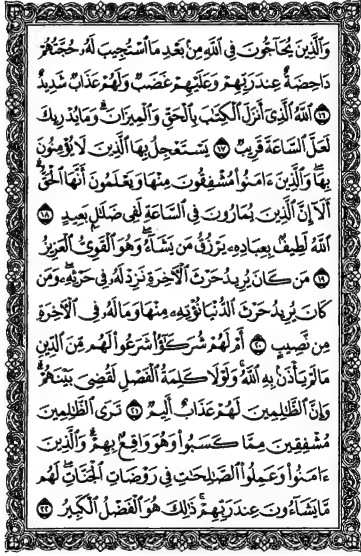 وَالَّذِينَ يُحَاجُّونَ فِي اللَّهِ مِنْ بَعْدِ مَا اسْتُجِيبَ لَهُ حُجَّتُهُمْ
دَاحِضَةٌ عِنْدَ رَبِّهِمْ وَعَلَيْهِمْ غَضَبٌ وَلَهُمْ عَذَابٌ شَدِيدٌ
١٦ اللَّهُ الَّذِي أَنْزَلَ الْكِتَٰبَ بِالْحَقِّ وَالْمِيزَانَ ۗ وَمَا يُدْرِيكَ
لَعَلَّ السَّاعَةَ قَرِيبٌ ١٧ يَسْتَعْجِلُ بِهَا الَّذِينَ لَا يُؤْمِنُونَ
بِهَا ۖ وَالَّذِينَ ءَامَنُوا مُشْفِقُونَ مِنْهَا وَيَعْلَمُونَ أَنَّهَا الْحَقُّ ۗ
أَلَا إِنَّ الَّذِينَ يُمَارُونَ فِي السَّاعَةِ لَفِي ضَلَٰلٍ بَعِيدٍ ١٨
اللَّهُ لَطِيفٌ بِعِبَادِهِ يَرْزُقُ مَنْ يَشَاءُ ۖ وَهُوَ الْقَوِيُّ الْعَزِيزُ
١٩ مَنْ كَانَ يُرِيدُ حَرْثَ الْآخِرَةِ نَزِدْ لَهُ فِي حَرْثِهِ ۖ وَمَنْ
كَانَ يُرِيدُ حَرْثَ الدُّنْيَا نُؤْتِهِ مِنْهَا وَمَا لَهُ فِي الْآخِرَةِ
مِنْ نَصِيبٍ ٢٠ أَمْ لَهُمْ شُرَكَٰٓؤُا شَرَعُوا لَهُمْ مِنَ الدِّينِ
مَا لَمْ يَأْذَنْ بِهِ اللَّهُ ۚ وَلَوْلَا كَلِمَةُ الْفَصْلِ لَقُضِيَ بَيْنَهُمْ ۗ
وَإِنَّ الظَّٰلِمِينَ لَهُمْ عَذَابٌ أَلِيمٌ ٢١ تَرَى الظَّٰلِمِينَ
مُشْفِقِينَ مِمَّا كَسَبُوا وَهُوَ وَاقِعٌ بِهِمْ ۗ وَالَّذِينَ
ءَامَنُوا وَعَمِلُوا الصَّٰلِحَٰتِ فِي رَوْضَاتِ الْجَنَّاتِ ۖ لَهُمْ
مَا يَشَاءُونَ عِنْدَ رَبِّهِمْ ۚ ذَٰلِكَ هُوَ الْفَضْلُ الْكَبِيرُ ٢٢